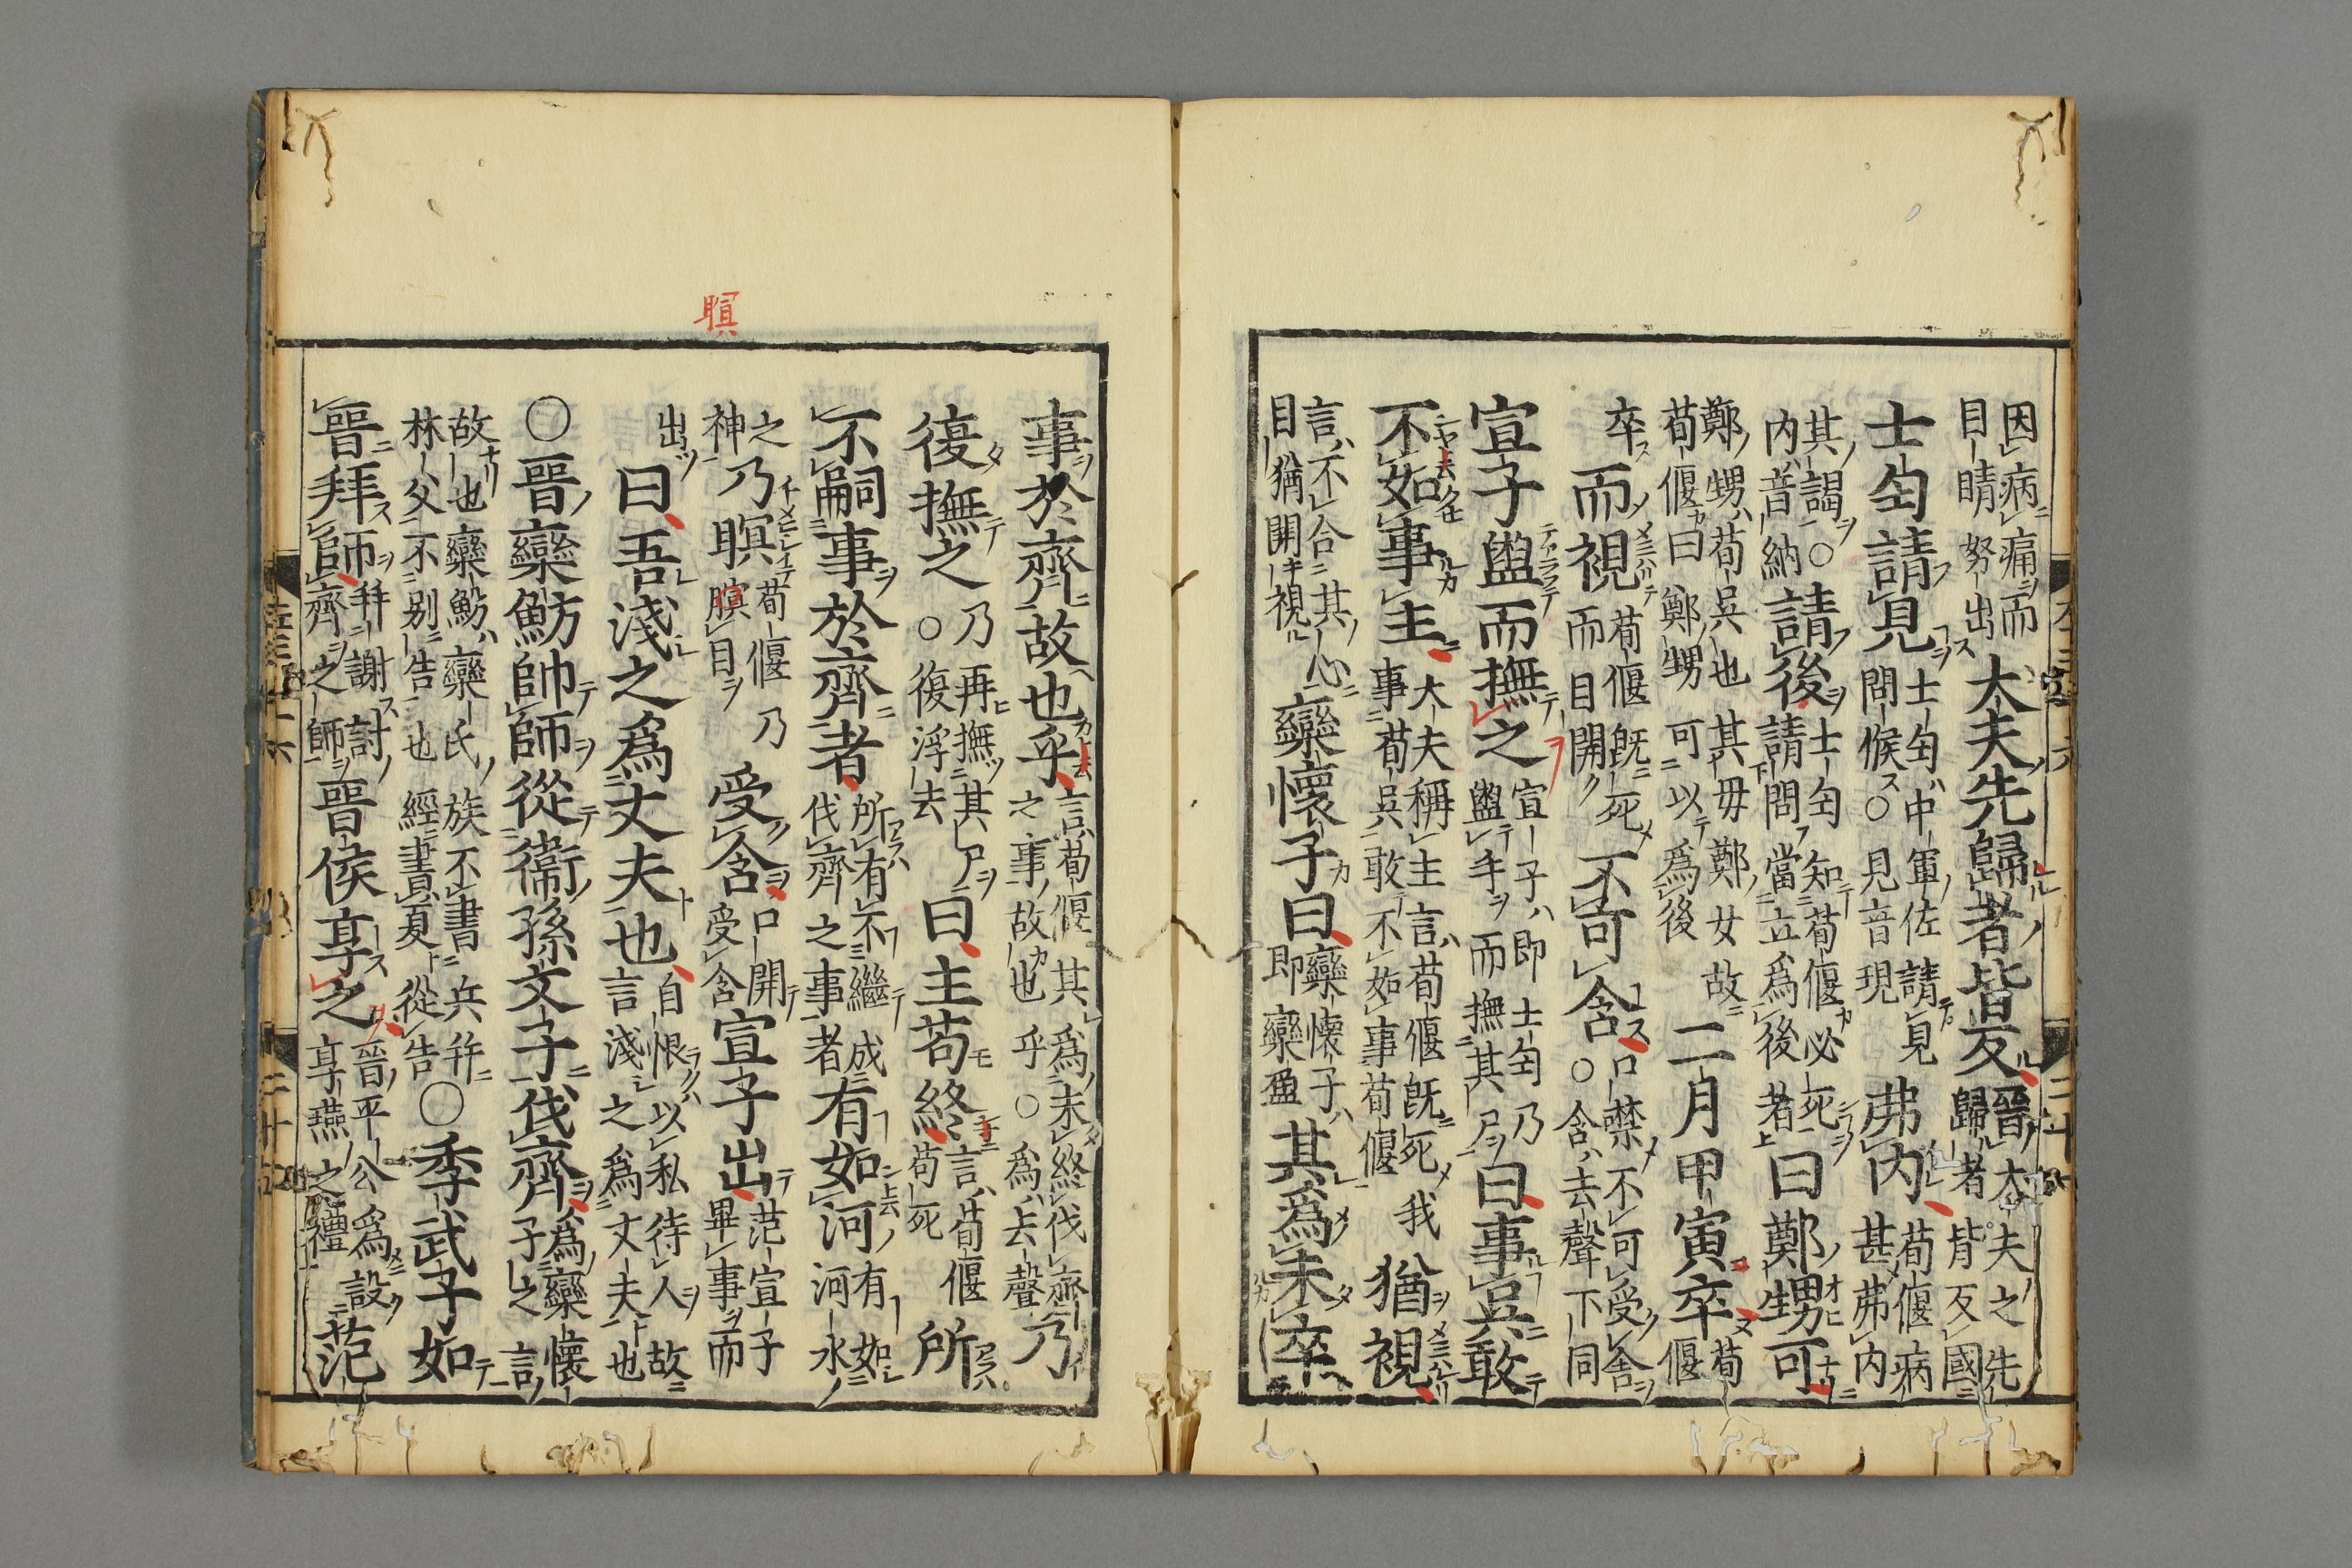 因病痛而
目睛努出
大夫先歸者皆反
晉大夫之先
歸者皆反國
士匄請見
士匄中軍佐請見
問候○見音現
弗內
荀偃病
甚弗內
其謁○
內音納
請後
士匄知荀偃必死
請問當立爲後者
曰鄭甥可
鄭甥荀吳也其毋鄭女故
荀偃曰鄭甥可以爲後
二月甲寅卒
荀
偃
卒
而視
荀偃旣死
而目開
不可含
口噤不可受含
○含去聲下同
宣子盥而撫之
宣子即士匄乃
盥手而撫其尸
曰事吳敢
不如事主
大夫稱主言荀偃旣死我
事荀吳敢不如事荀偃
猶視
言不合其心
目猶開視
欒懷子曰
欒懷子
即欒盈
其爲未卒
事於齊故也乎
言荀偃其爲未終伐齊
之事故也乎○爲去聲
乃
復撫之
乃再撫其尸
○復浮去
曰主苟終
言荀偃
苟死
所
不嗣事於齊者
所有不繼成
伐齊之事者
有如河
有如
河河水
之
神
乃瞑
荀偃乃
瞑目
受含
口開
受含
宣子出
范宣子
畢事而
出
曰吾淺之爲丈夫也
自恨以私待人故
言淺之爲丈夫也
○晉欒魴帥師從衞孫文子伐齊
爲欒懷
子之言
故也欒魴欒氏族不書兵并
林父不別告也經書夏從告
○季武子如
晉拜師
拜謝討
齊之師
晉侯享之
晉平公爲設
享燕之禮
范
瞑